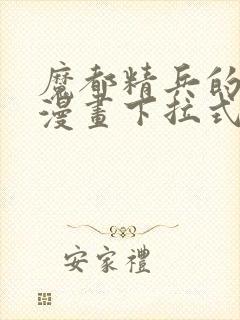 魔都精兵的
漫畫下拉式
安家禮